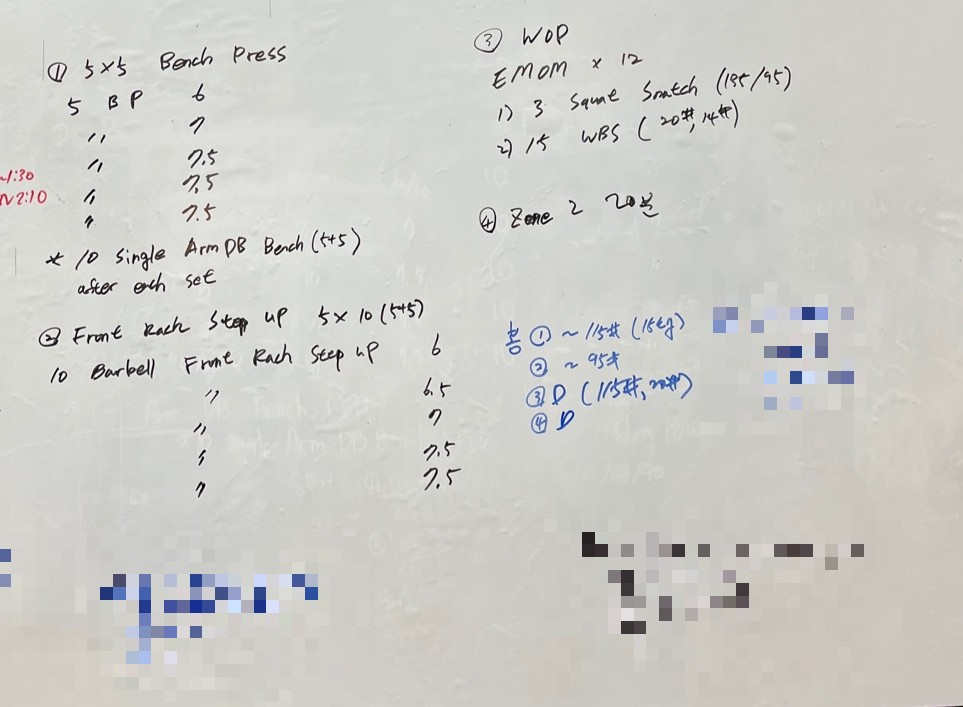 ① 5x5 Bench Press
5 BP 6
〃 7
〃 7.5
~1:30
〃 7.5
~2:10
〃 7.5
* 10 Single Arm DB Bench (5+5)
after each set
② Front Rack Step up 5x10 (5+5)
10 Barbell Front Rack Step up 6
〃 6.5
〃 7
〃 7.5
〃 7.5
③ WOD
EMOM x 12
1) 3 Squat Snatch (135/95)
2) 15 WBS (20#, 14#)
④ Zone 2 20분
① ~115# (15kg)
② ~95#
③ D (115#, 20#)
④ D